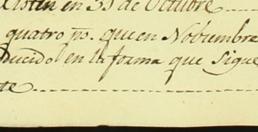 existen en 31 de Octubre
quatro ps. que en Nobiembre
ducido en la forma que sigue
te